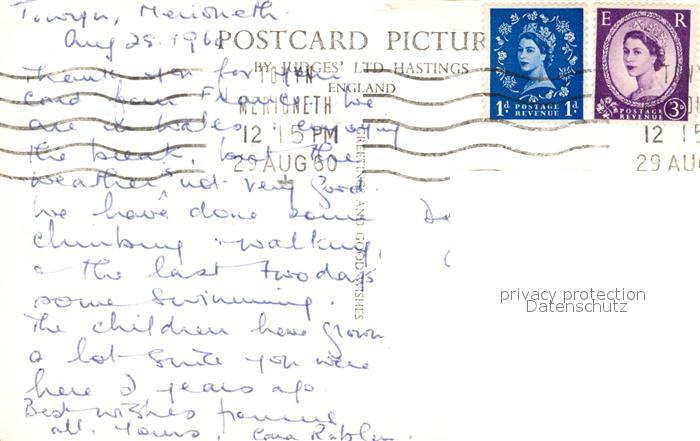 Towyn, Merioneth.
Aug 28. 1960
POSTCARD PICTUR
BY JUDGES' LTD HASTINGS
ENGLAND
E R
1d POSTAGE REVENUE 1d
POSTAGE REVENUE 3d
TOWYN
MERIONETH
12 15 PM
29 AUG 60
12 15
29 AUG
GREETINGS AND GOOD WISHES
Thank you for your
card from. We
are in Wales, enjoying
the break, but the
weather's not very good.
We have done some
climbing & walking,
& the last two days
some swimming.
The children have grown
a lot since you were
here 2 years ago.
Best wishes from us
all. Yours,
De
privacy protection
Datenschutz